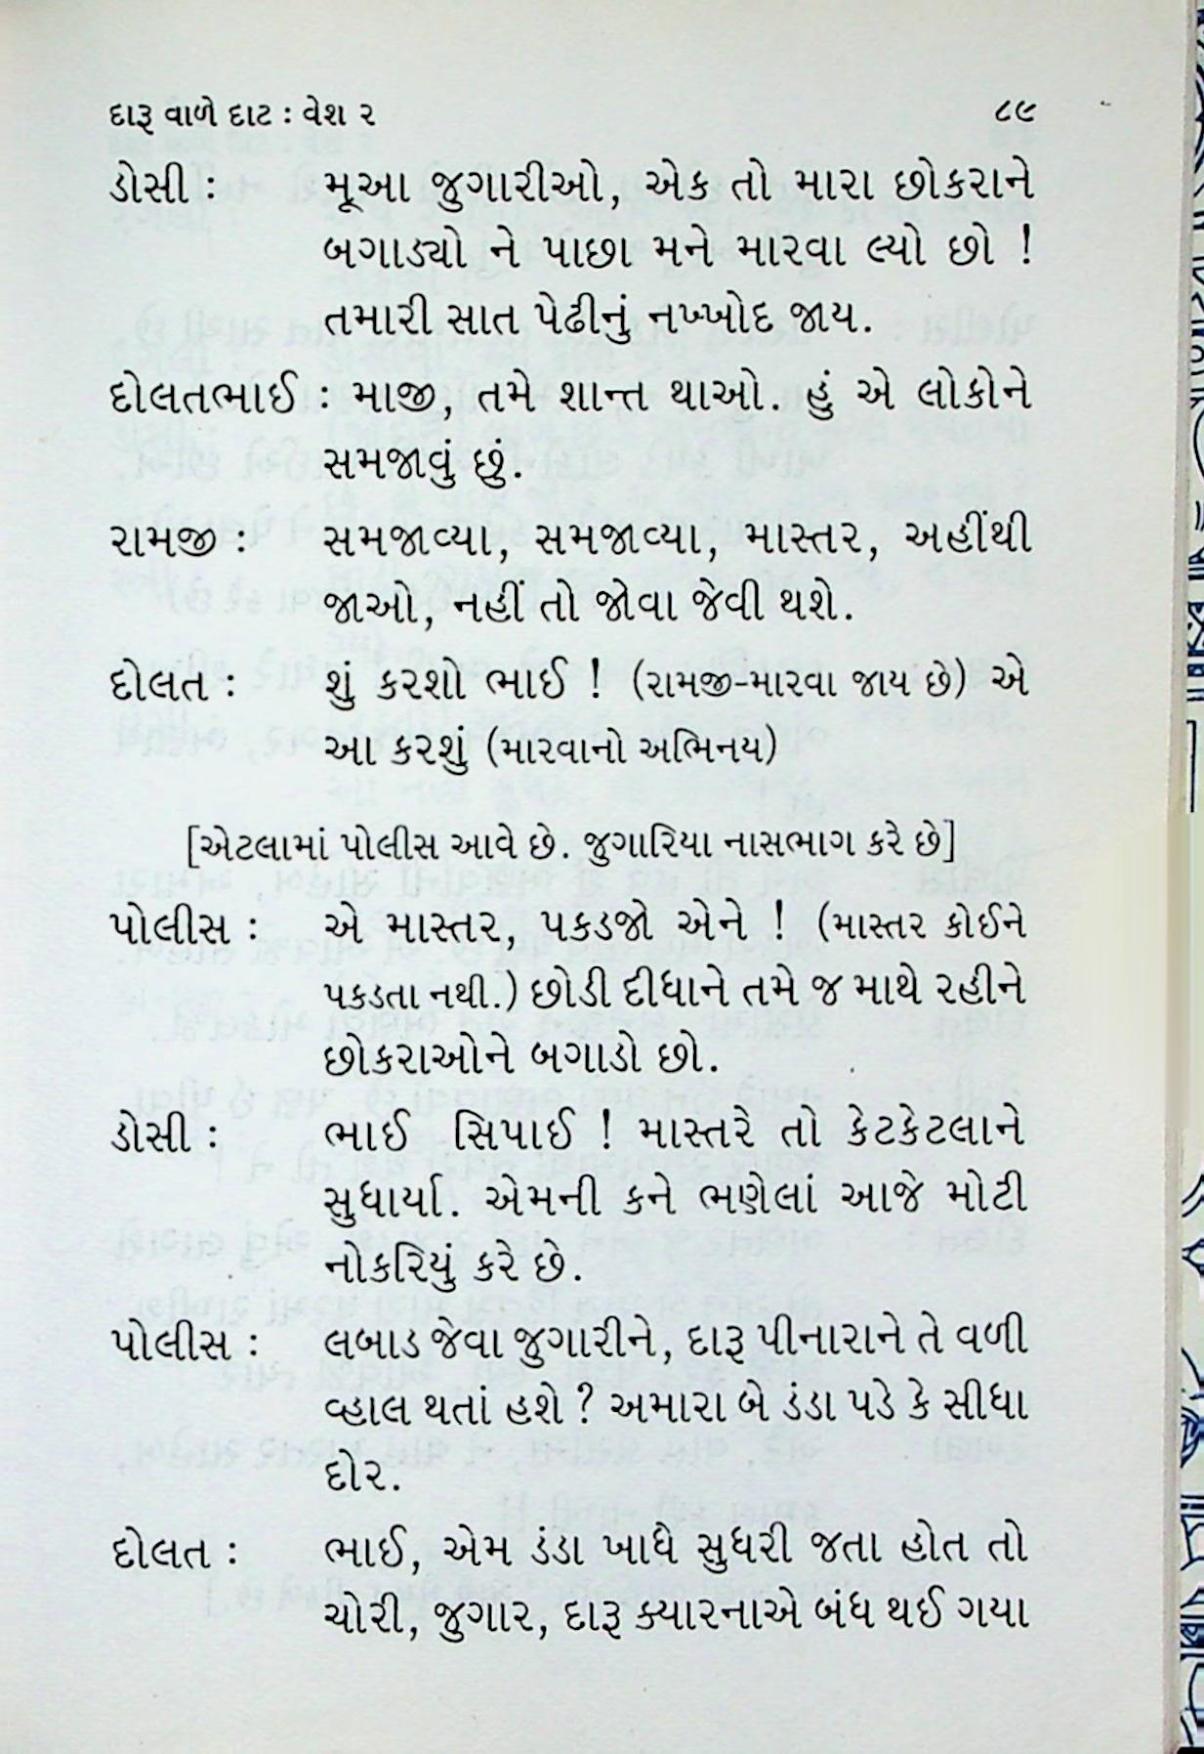 દારૂ વાળે દાટ : વેશ ૨ ૮૯
ડોસી : મૂઆ જુગારીઓ, એક તો મારા છોકરાને
બગાડ્યો ને પાછા મને મારવા લ્યો છો !
તમારી સાત પેઢીનું નખ્ખોદ જાય.
દોલતભાઈ : માજી, તમે શાન્ત થાઓ. હું એ લોકોને
સમજાવું છું.
રામજી : સમજાવ્યા, સમજાવ્યા, માસ્તર, અહીંથી
જાઓ, નહીં તો જોવા જેવી થશે.
દોલત : શું કરશો ભાઈ ! (રામજી-મારવા જાય છે) એ
આ કરશું (મારવાનો અભિનય)
[એટલામાં પોલીસ આવે છે. જુગારિયા નાસભાગ કરે છે]
પોલીસ : એ માસ્તર, પકડજો એને ! (માસ્તર કોઈને
પકડતા નથી.) છોડી દીધાને તમે જ માથે રહીને
છોકરાઓને બગાડો છો.
ડોસી : ભાઈ સિપાઈ ! માસ્તરે તો કેટકેટલાને
સુધાર્યા. એમની કને ભણેલાં આજે મોટી
નોકરિયું કરે છે.
પોલીસ : લબાડ જેવા જુગારીને, દારૂ પીનારાને તે વળી
વ્હાલ થતાં હશે ? અમારા બે ડંડા પડે કે સીધા
દોર.
દોલત : ભાઈ, એમ ડંડા ખાધે સુધરી જતા હોત તો
ચોરી, જુગાર, દારૂ ક્યારનાએ બંધ થઈ ગયા